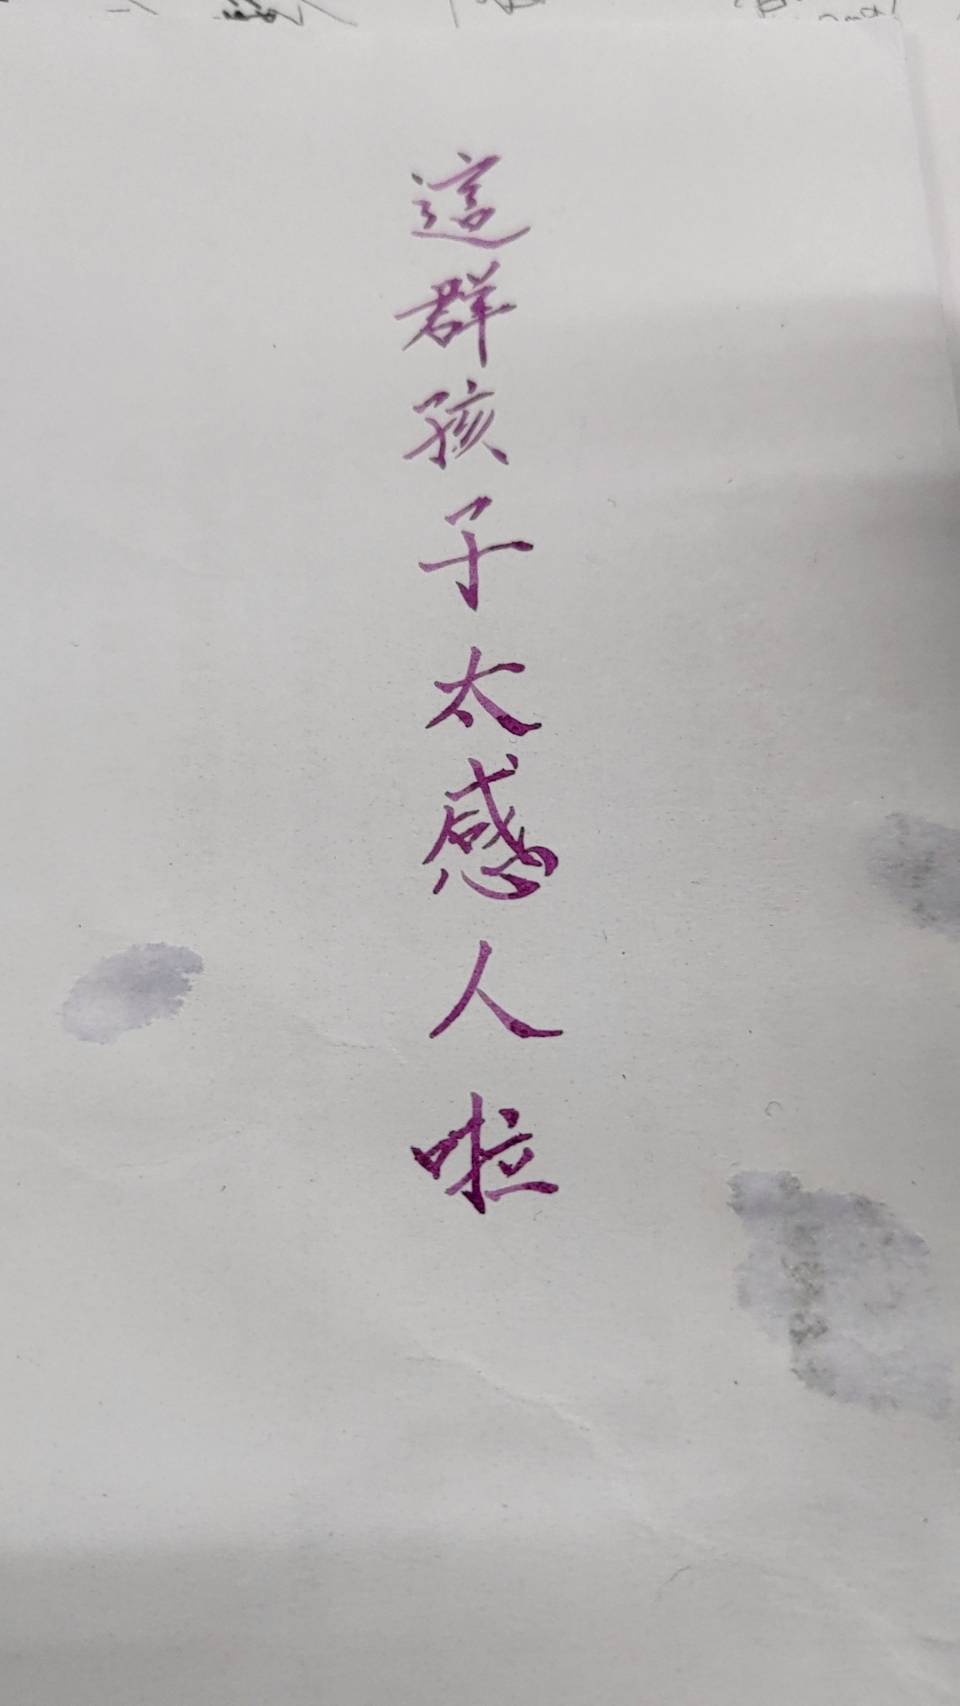 這群孩子太感人啦